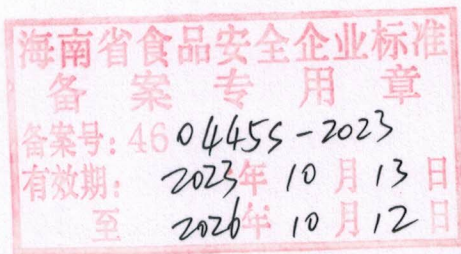 海南省食品安全企业标准
备案专用章
备案号：46 0445S-2023
有效期： 2023年 10月 13日
至 2026年 10月 12日